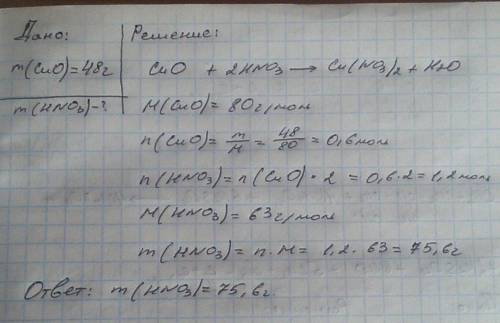 Дано:
Решение:
m(CuO)=48г
CuO + 2HNO3 → Cu(NO3)2 + H2O
m(HNO3)-?
M(CuO)=80г/моль
n(CuO)= m/M = 48/80 = 0,6моль
n(HNO3)=n(CuO)·2 = 0,6·2=1,2моль
M(HNO3)=63г/моль
m(HNO3)=n·M= 1,2·63=75,6г
Ответ: m(HNO3)=75,6г